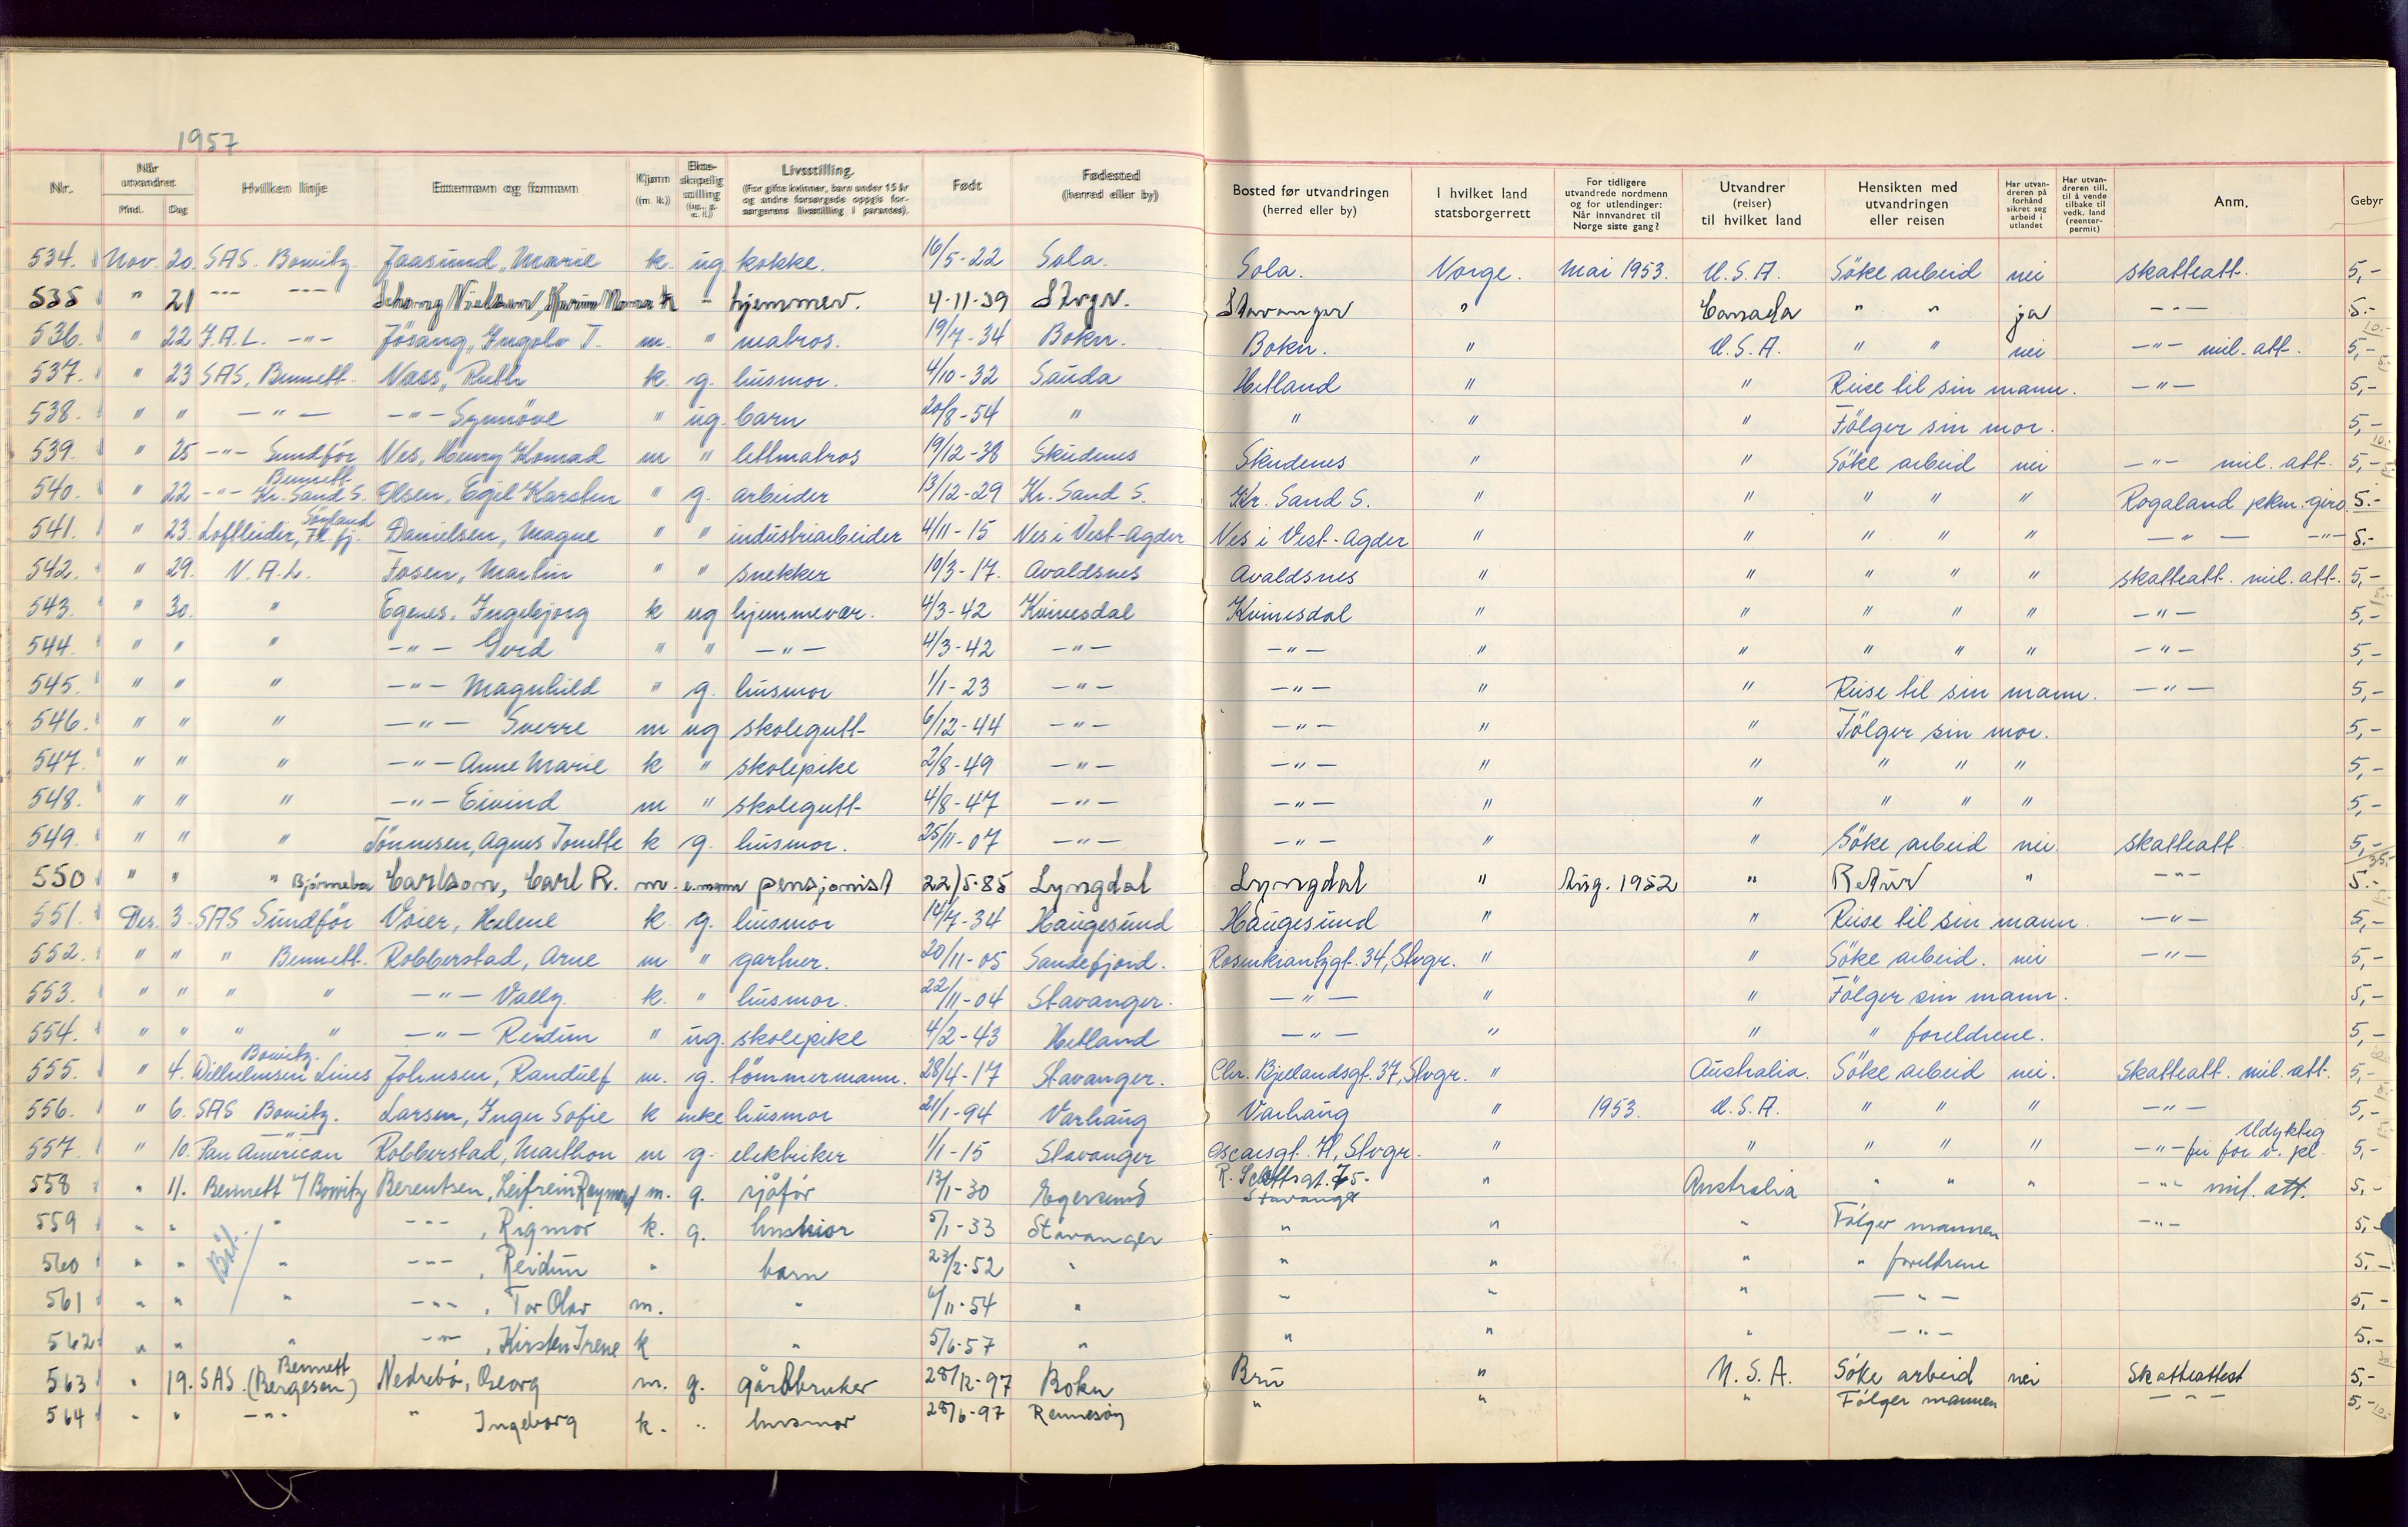 1957
Nr. Når utvandret Mnd. Dag Hvilken linje Etternavn og fornavn Kjønn (m. k.) Ekteskapelig stilling (ug., g., e. f.) Livsstilling. (For gifte kvinner, barn under 15 år og andre forsørgede oppgis forsørgerens livsstilling i parantes). Født Fødested (herred eller by) Bosted før utvandringen (herred eller by) I hvilket land statsborgerrett For tidligere utvandrede nordmenn og for utlendinger: Når innvandret til Norge siste gang? Utvandrer (reiser) til hvilket land Hensikten med utvandringen eller reisen Har utvandreren på forhånd sikret seg arbeid i utlandet Har utvandreren till. til å vende tilbake til vedk. land (reenterpermit) Anm. Gebyr
534. Nov. 20. SAS. Bowitz. Jaasund, Marie k. ug. kokke. 16/5-22 Sola. Sola. Norge. Mai 1953. U.S.A. Söke arbeid nei skatteatt. 5,-
535 " 21 -"- -"- Nielsen, k - hjemmev. 4-11-39 Stvgr. Stavanger " Canada " " ja -"- 5.-
536. " 22 F.A.L. -"- Jösang, Ingolv T. m. " matros. 19/7-34 Bokn. Bokn. " U.S.A. " " nei -"- mil. att. 5,-
537. " 23 SAS, Bennett. Næss, Ruth k. g. husmor. 4/10-32 Sauda Hetland " " Reise til sin mann. -"- 5,-
538. " " -"- -"- Synnöve " ug. barn 20/8-54 " " " " Fölger sin mor. 5,-
539. " 25 -"- Sundför Nes, Henry Konrad m " lettmatros 19/12-38 Skudenes Skudenes " " Söke arbeid nei -"- mil. att. 5,-
540. " 22 -"- Bennett Kr. Sand S. Olsen, Egil Karsten " g. arbeider 13/12-29 Kr. Sand S. Kr. Sand S. " " " " " Rogaland pkm. giro 5.-
541. " 23. Loftleidir, Fl. fj. Danielsen, Magne " " industriarbeider 4/11-15 Nes i Vest-Agder Nes i Vest-Agder " " " " " -"- -"- 5.-
542. " 29. N.A.L. Fosen, Martin " " snekker 10/3-17. Avaldsnes Avaldsnes " " " " " skatteatt. mil. att. 5,-
543. " 30. " Egenes, Ingebjorg k ug hjemmevær. 4/3-42 Kvinesdal Kvinesdal " " " " " -"- 5,-
544. " " " -"- Gerd " " -"- 4/3-42 -"- -"- " " " " " -"- 5,-
545. " " " -"- Magnhild " g. husmor 1/1-23 -"- -"- " " Reise til sin mann. -"- 5,-
546. " " " -"- Sverre m ug skolegutt 6/12-44 -"- -"- " " Fölger sin mor. 5,-
547. " " " -"- Anne Marie k " skolepike 2/8-49 -"- -"- " " " " " 5,-
548. " " " -"- Eivind m " skolegutt 4/8-47 -"- -"- " " " " " 5,-
549. " " " Tönnesen, Agnes Tonette k g. husmor. 25/11-07 -"- -"- " " Söke arbeid nei. skatteatt. 5,-
550 " " " Bjørnebo Carlson, Carl R. m. e.mann pensjonist 22/5-85 Lyngdal Lyngdal " Aug. 1952 " Retur " -"- 5.-
551. Des. 3. SAS Sundför Voier, Helene k. g. husmor 14/7-34 Haugesund Haugesund " " Reise til sin mann. -"- 5,-
552. " " " Bennett. Robberstad, Arne m " gartner. 20/11-05 Sandefjord. Rosenkrantzgt. 34, Stvgr. " " Söke arbeid. nei -"- 5,-
553. " " " " -"- Vally. k. " husmor. 22/11-04 Stavanger. -"- " " Fölger sin mann. 5,-
554. " " " " -"- Reidun " ug. skolepike 4/2-43 Hetland -"- " " " foreldrene. 5,-
555. " 4. Bowitz. Wilhelmsen Lines Johnsen, Randulf m. g. tömmermann. 28/4-17 Stavanger. Chr. Bjellandsgt. 37, Stvgr. " Australia. Söke arbeid nei. Skatteatt. mil. att. 5,-
556. " 6. SAS Bowitz. Larsen, Inger Sofie k enke husmor 21/1-94 Varhaug Varhaug " 1953. U.S.A. " " " -"- 5,-
557. " 10. -"- Pan American Robberstad, Marthon m g. elektriker 1/1-15 Stavanger Oscarsgt. 71, Stvgr. " " " " " -"- Udyktig fri for v. pl. 5,-
558 " 11. Bennett / Bowitz Berentsen, Leifrein Raymond m. g. sjåför 13/1-30 Egersund R. Scottsgt. 75. Stavanger " Australia " " " -"- mil. att. 5,-
559 " " Båt. " -"-, Rigmor k. g. husmor 5/1-33 Stavanger " " " Følger mannen -"- 5,-
560 " " " -"-, Reidun " barn 23/2-52 " " " " " foreldrene 5,-
561 " " " -"-, Tor Olav m. " 4/11-54 " " " " -"- 5,-
562 " " " -"-, Kirsten Irene k " 5/6-57 " " " " -"- 5.-
563 " 19. SAS. Bennett (Bergesen) Nedrebö, Georg m. g. gårdbruker 28/12-97 Bokn Bru " U.S.A. Söke arbeid nei Skatteattest 5,-
564 " " -"- " Ingeborg k. " husmor 28/6-97 Rennesöy " " " Følger mannen -"- 5,-